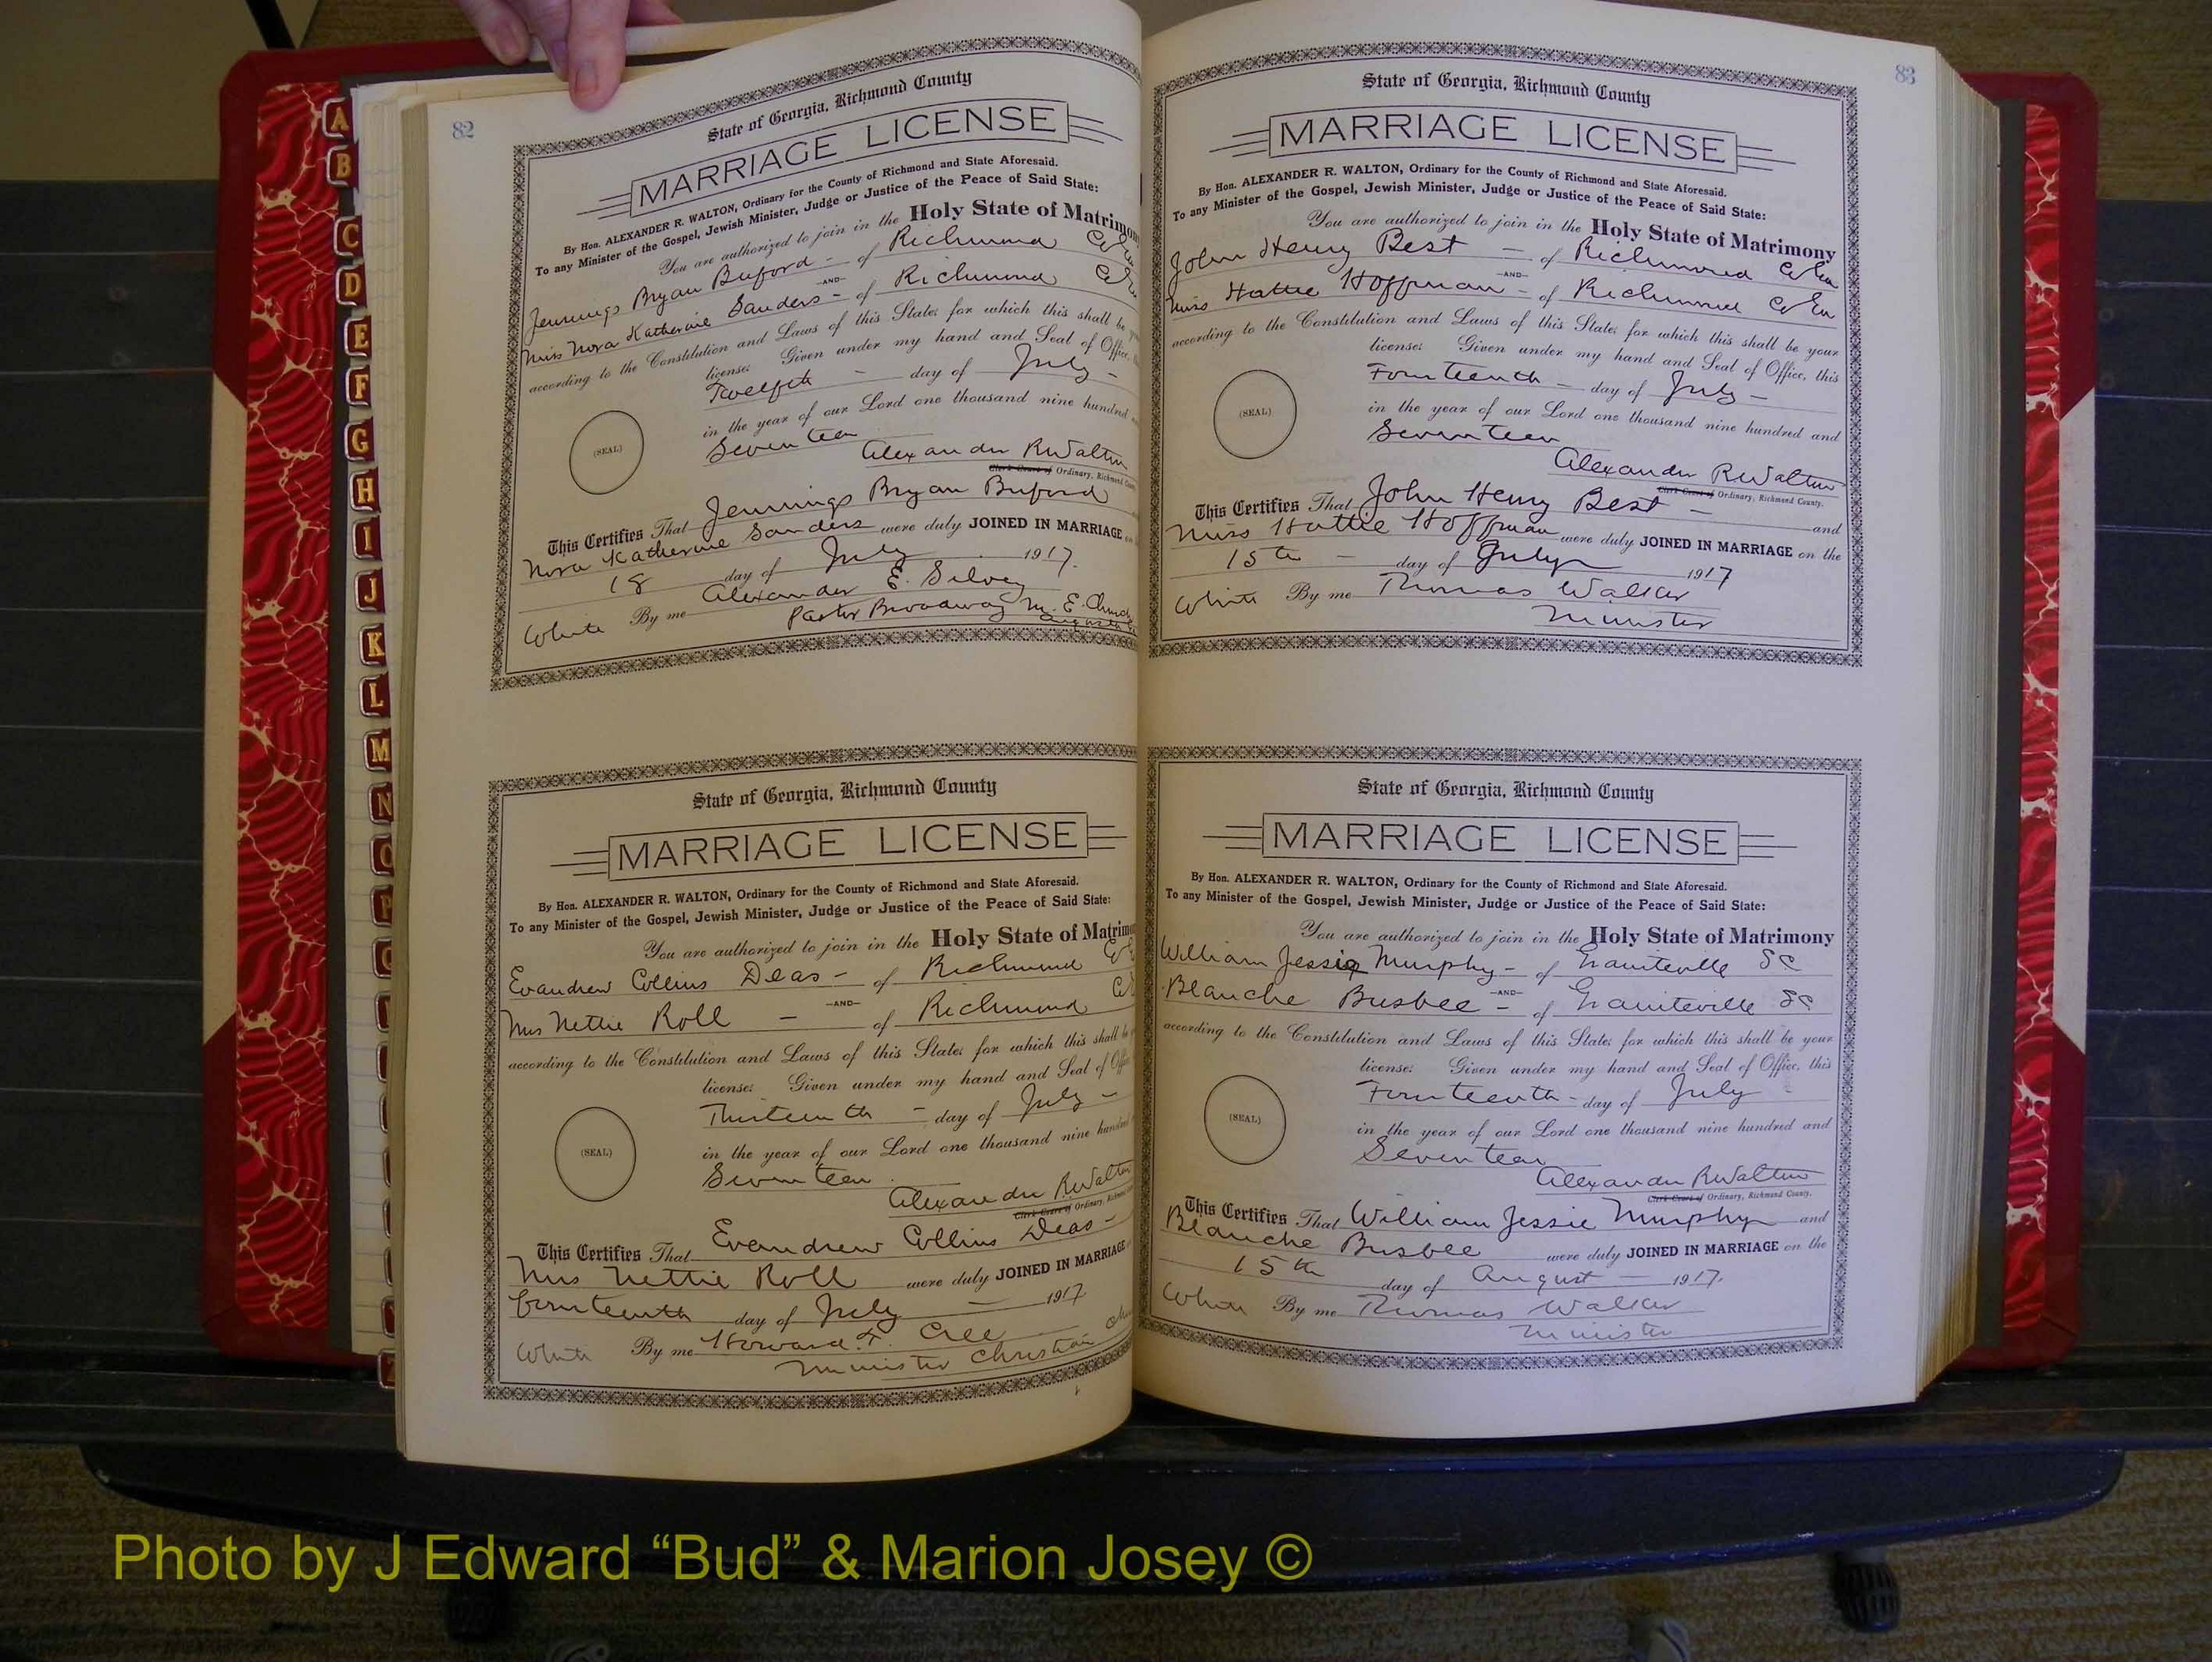 82
State of Georgia, Richmond County
MARRIAGE LICENSE
By Hon. ALEXANDER R. WALTON, Ordinary for the County of Richmond and State Aforesaid.
To any Minister of the Gospel, Jewish Minister, Judge or Justice of the Peace of Said State:
You are authorized to join in the Holy State of Matrimony
Jennings Bryan Buford - of Richmond
-AND-
Miss Nora Katherine Sanders - of Richmond
according to the Constitution and Laws of this State; for which this shall be
license: Given under my hand and Seal of Office,
Twelfth - day of July -
in the year of our Lord one thousand nine hundred
Seventeen
(SEAL)
Alexander R Walton
Clerk Court of Ordinary, Richmond County.
This Certifies That Jennings Bryan Buford
Nora Katherine Sanders were duly JOINED IN MARRIAGE
18 day of July 1917.
White By me Alexander E. Silvey
Pastor Broadway M. E. Church
Augusta
State of Georgia, Richmond County
MARRIAGE LICENSE
By Hon. ALEXANDER R. WALTON, Ordinary for the County of Richmond and State Aforesaid.
To any Minister of the Gospel, Jewish Minister, Judge or Justice of the Peace of Said State:
You are authorized to join in the Holy State of Matrimo
Evandrew Collins Deas - of Richmond
-AND-
Mrs Nettie Roll - of Richmond
according to the Constitution and Laws of this State; for which this shall be
license: Given under my hand and Seal of
Thirteenth - day of July -
in the year of our Lord one thousand nine hundred
Seventeen
(SEAL)
Alexander R Walton
Clerk Court of Ordinary,
This Certifies That Evandrew Collins Deas -
Mrs Nettie Roll were duly JOINED IN MARRIAGE
fourteenth day of July - 1917
White By me Howard T. Cree
Minister Christian
83
State of Georgia, Richmond County
MARRIAGE LICENSE
By Hon. ALEXANDER R. WALTON, Ordinary for the County of Richmond and State Aforesaid.
To any Minister of the Gospel, Jewish Minister, Judge or Justice of the Peace of Said State:
You are authorized to join in the Holy State of Matrimony
John Henry Best - of Richmond Co Ga
-AND-
Miss Hattie Hoffman - of Richmond Co Ga
according to the Constitution and Laws of this State; for which this shall be your
license: Given under my hand and Seal of Office, this
Fourteenth - day of July -
in the year of our Lord one thousand nine hundred and
Seventeen
(SEAL)
Alexander R Walton
Clerk Court of Ordinary, Richmond County.
This Certifies That John Henry Best - and
Miss Hattie Hoffman were duly JOINED IN MARRIAGE on the
15th - day of July 1917
White By me Thomas Walker
Minister
State of Georgia, Richmond County
MARRIAGE LICENSE
By Hon. ALEXANDER R. WALTON, Ordinary for the County of Richmond and State Aforesaid.
To any Minister of the Gospel, Jewish Minister, Judge or Justice of the Peace of Said State:
You are authorized to join in the Holy State of Matrimony
William Jessie Murphy - of Graniteville SC
-AND-
Blanche Busbee - of Graniteville SC
according to the Constitution and Laws of this State; for which this shall be your
license: Given under my hand and Seal of Office, this
Fourteenth - day of July
in the year of our Lord one thousand nine hundred and
Seventeen
(SEAL)
Alexander R Walton
Clerk Court of Ordinary, Richmond County.
This Certifies That William Jessie Murphy and
Blanche Busbee were duly JOINED IN MARRIAGE on the
15th day of August - 1917.
White By me Thomas Walker
Minister
A
B
C
D
E
F
G
H
I
J
K
L
M
N
O
P
Photo by J Edward “Bud” & Marion Josey ©